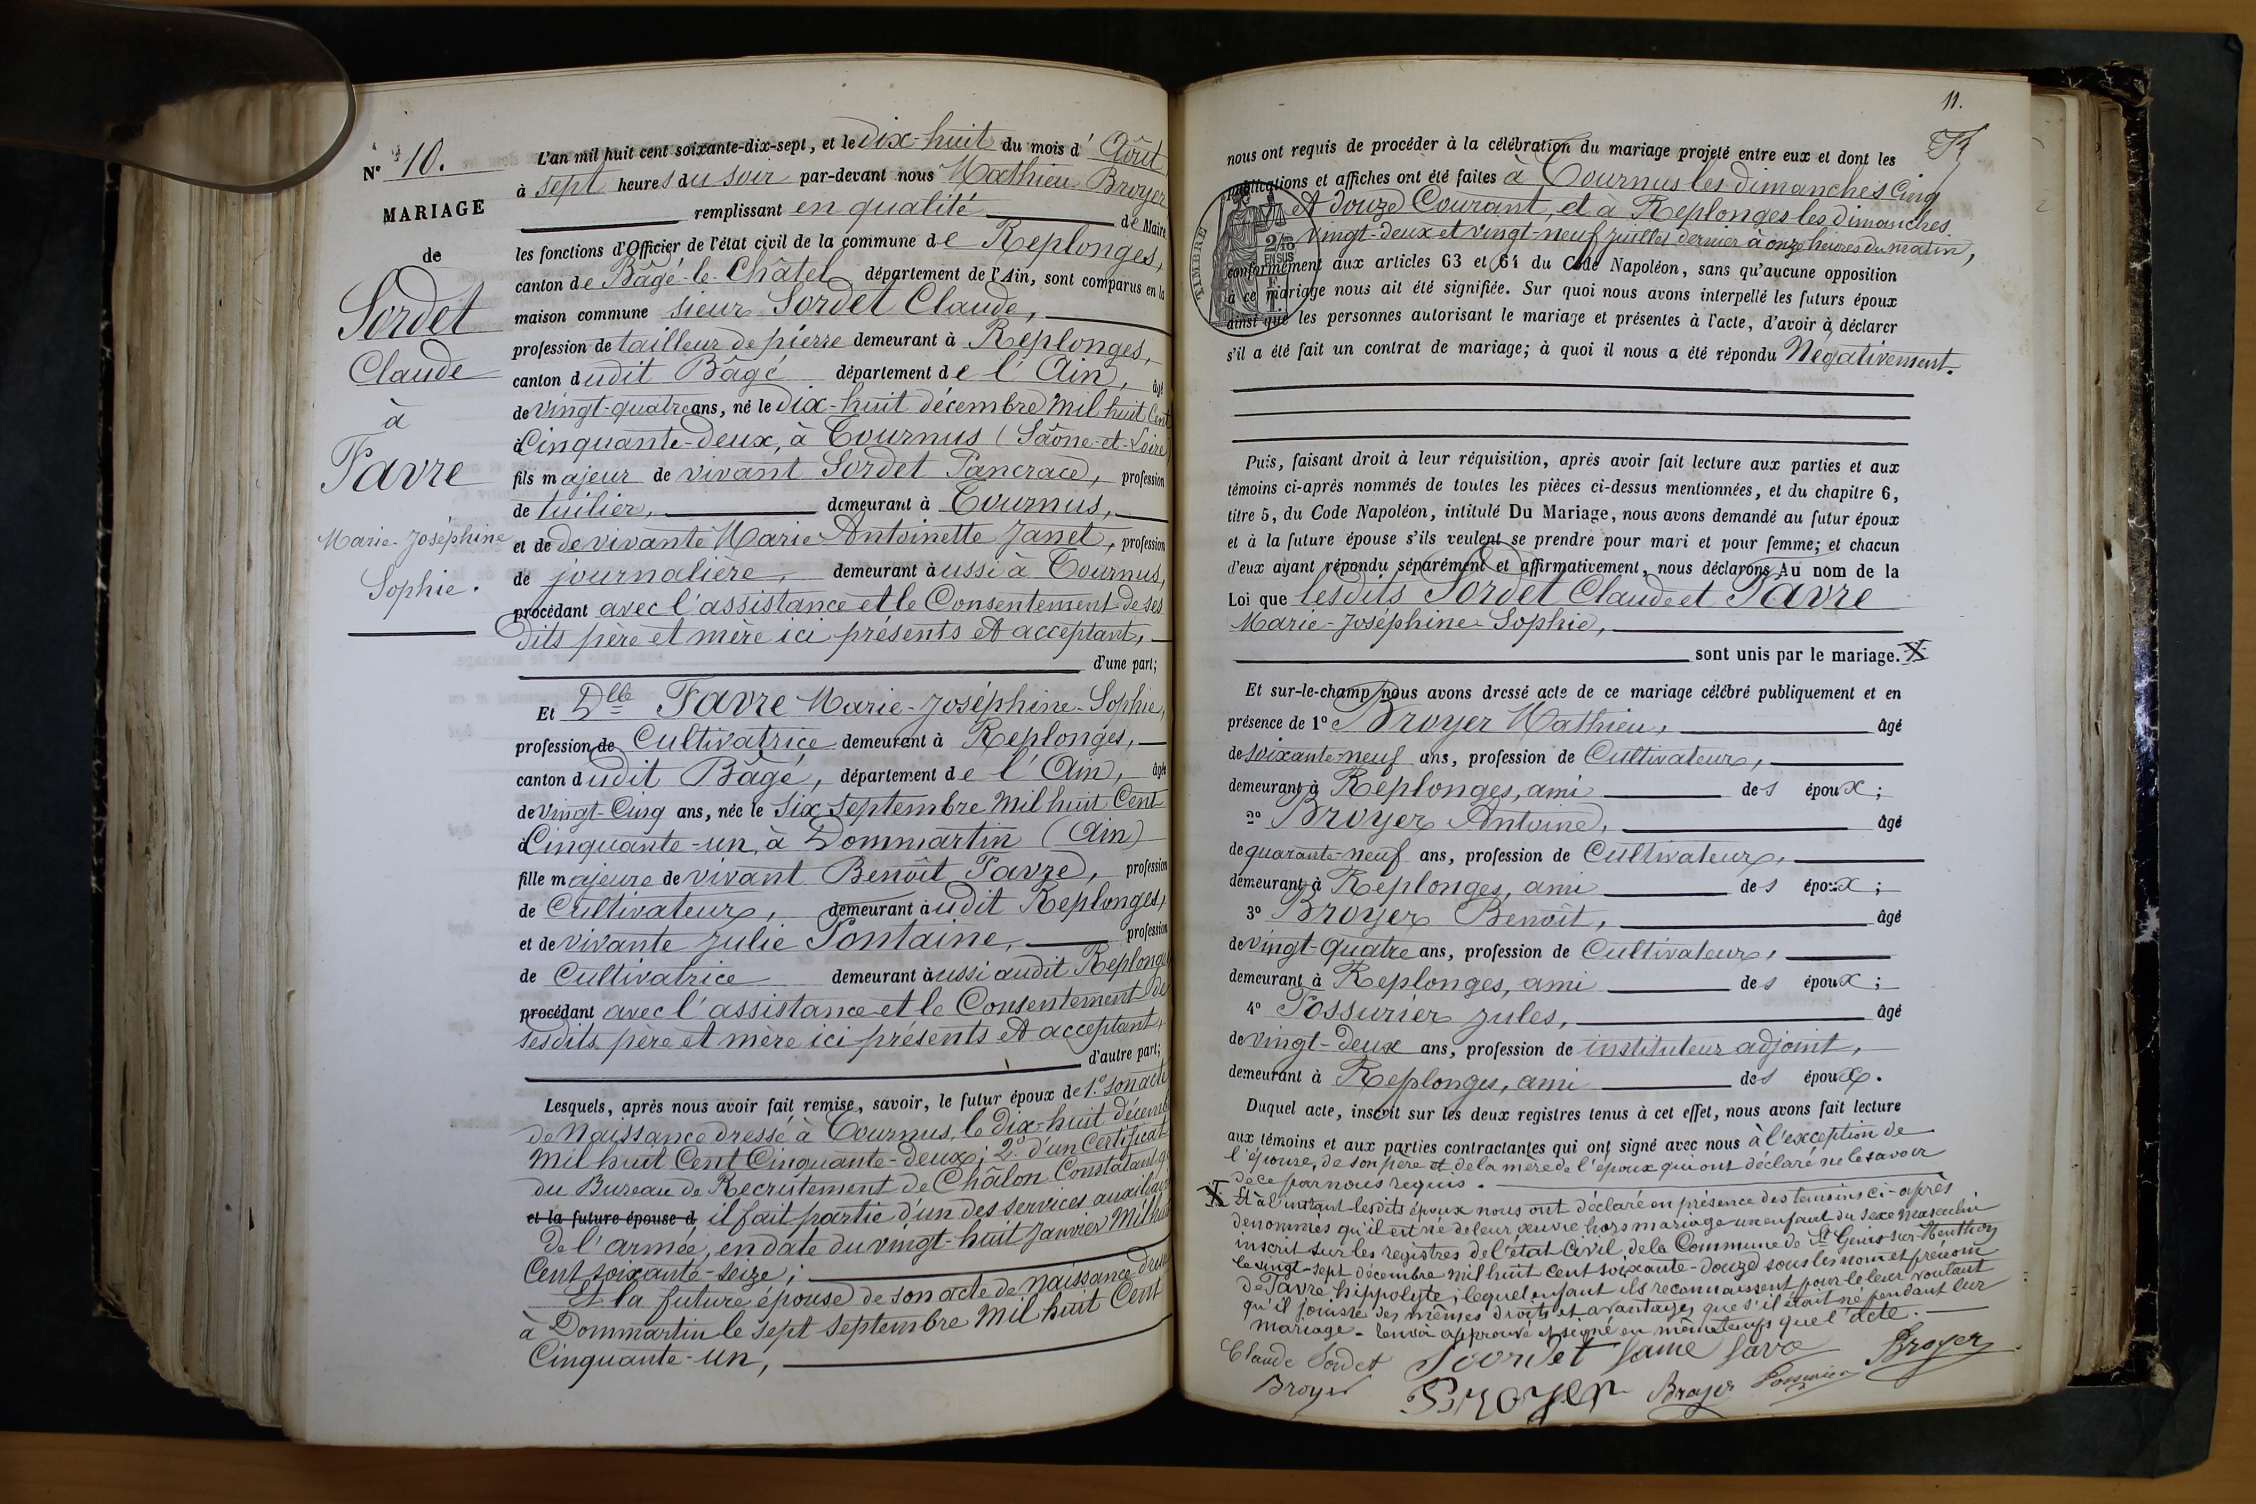 N° 10.
MARIAGE
de
Sordet
Claude
à
Favre
Marie-Joséphine
Sophie.
L'an mil huit cent soixante-dix-sept, et le dix-huit du mois d'Août
à sept heures du soir par-devant nous Mathieu Broyer
remplissant en qualité de Maire
les fonctions d'Officier de l'état civil de la commune de Replonges,
canton de Bâgé-le-Châtel département de l'Ain, sont comparus en la
maison commune sieur Sordet Claude,
profession de tailleur de pierre demeurant à Replonges,
canton dudit Bâgé département de l'Ain, âgé
de vingt-quatre ans, né le dix-huit décembre mil huit Cent
Cinquante-deux, à Tournus (Saône-et-Loire)
fils majeur de vivant Sordet Pancrace, profession
de tuilier, demeurant à Tournus,
et de de vivante Marie Antoinette Janet, profession
de journalière, demeurant aussi à Tournus,
procédant avec l'assistance et le Consentement de ses
dits père et mère ici présents et acceptant,
d'une part;
Et Dlle Favre Marie-Joséphine-Sophie,
profession de Cultivatrice demeurant à Replonges,
canton dudit Bâgé, département de l'Ain, âgée
de vingt-Cinq ans, née le six septembre mil huit Cent
Cinquante-un, à Dommartin (Ain)
fille majeure de vivant Benoît Favre, profession
de Cultivateur, demeurant audit Replonges,
et de vivante Julie Pontaine, profession
de Cultivatrice demeurant aussi audit Replonges
procédant avec l'assistance et le Consentement de
sesdits père et mère ici présents et acceptant,
d'autre part;
Lesquels, après nous avoir fait remise, savoir, le futur époux de 1° son acte
de Naissance dressé à Tournus, le dix-huit décembre
mil huit Cent Cinquante-deux; 2° d'un Certificat
du Bureau de Recrutement de Châlon Constatant qu
et la future épouse d il fait partie d'un des services auxiliaires
de l'armée, en date du vingt-huit Janvier Mil huit
Cent soixante-seize;
Et la future épouse de son acte de naissance dressé
à Dommartin le sept septembre mil huit Cent
Cinquante-un,
11.
nous ont requis de procéder à la célébration du mariage projeté entre eux et dont les
publications et affiches ont été faites à Tournus les dimanches Cinq
et douze Courant, et à Replonges les dimanches
vingt-deux et vingt-neuf juillet dernier à onze heures du matin,
TIMBRE
2/10
EN SUS
conformément aux articles 63 et 64 du Code Napoléon, sans qu'aucune opposition
à ce mariage nous ait été signifiée. Sur quoi nous avons interpellé les futurs époux
ainsi que les personnes autorisant le mariage et présentes à l'acte, d'avoir à déclarer
s'il a été fait un contrat de mariage; à quoi il nous a été répondu Négativement.
Puis, faisant droit à leur réquisition, après avoir fait lecture aux parties et aux
témoins ci-après nommés de toutes les pièces ci-dessus mentionnées, et du chapitre 6,
titre 5, du Code Napoléon, intitulé Du Mariage, nous avons demandé au futur époux
et à la future épouse s'ils veulent se prendre pour mari et pour femme; et chacun
d'eux ayant répondu séparément et affirmativement, nous déclarons Au nom de la
Loi que lesdits Sordet Claude et Favre
Marie-Joséphine-Sophie,
sont unis par le mariage. X
Et sur-le-champ nous avons dressé acte de ce mariage célébré publiquement et en
présence de 1° Broyer Mathieu, âgé
de soixante-neuf ans, profession de Cultivateur,
demeurant à Replonges, ami des époux;
2° Broyer Antoine, âgé
de quarante-neuf ans, profession de Cultivateur,
demeurant à Replonges, ami des époux;
3° Broyer Benoît, âgé
de vingt-quatre ans, profession de Cultivateur,
demeurant à Replonges, ami des époux;
4° Possurier Jules, âgé
de vingt-deux ans, profession de instituteur adjoint,
demeurant à Replonges, ami des époux.
Duquel acte, inscrit sur les deux registres tenus à cet effet, nous avons fait lecture
aux témoins et aux parties contractantes qui ont signé avec nous à l'exception de
l'épouse, de son père et de la mère de l'époux qui ont déclaré ne le savoir
de ce par nous requis.
X Et à l'instant lesdits époux nous ont déclaré en présence des témoins ci-après
dénommés qu'il est né de leur œuvre hors mariage un enfant du sexe masculin
inscrit sur les registres de l'état Civil de la Commune de St Genis sur Menthon
le vingt-sept décembre mil huit cent soixante-douze sous les nom et prénom
de Favre hippolyte; lequel enfant ils reconnaissent pour le leur voulant
qu'il jouisse des mêmes droits et avantages que s'il était né pendant leur
mariage. - renvoi approuvé et signé en même temps que l'acte.
Claude Sordet Sordet Broyer
Broyer Broyer Broyer Possurier